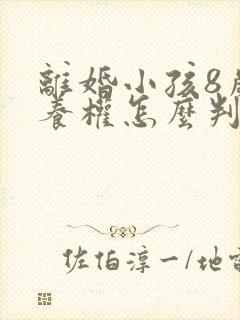 離婚小孩8歲
養權怎麼判
佐伯淳一/地